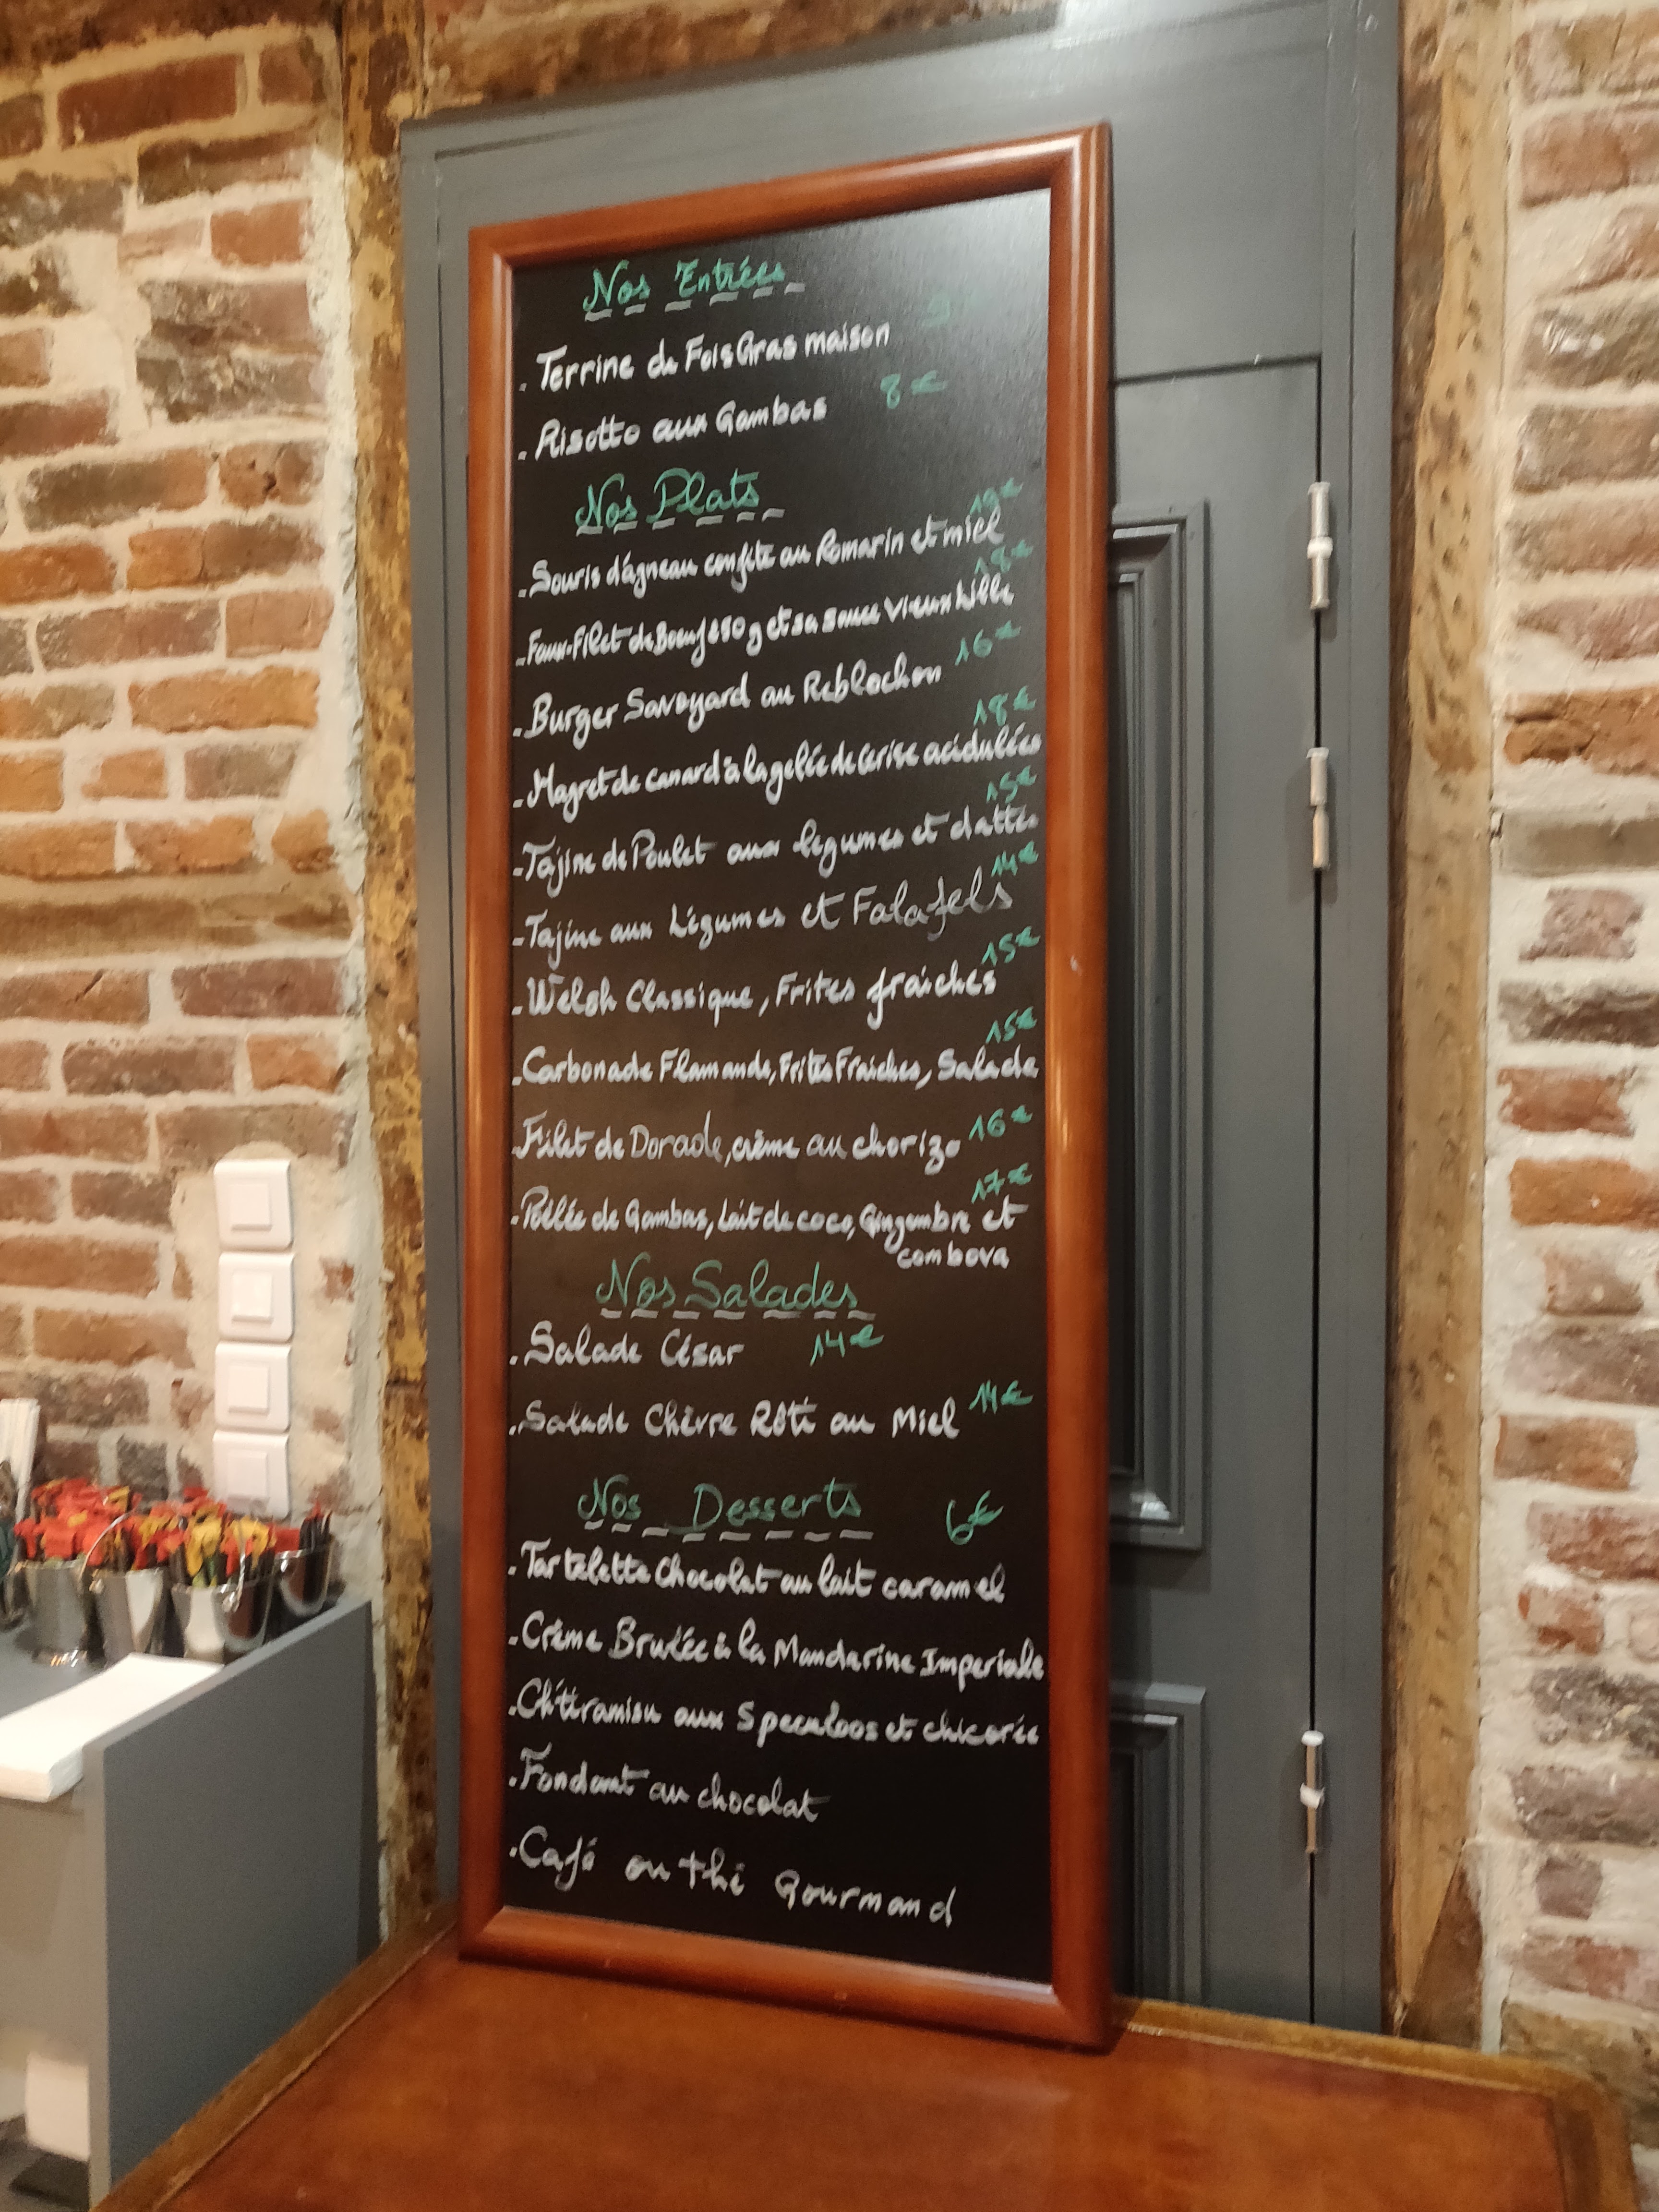 Nos Entrées
. Terrine de Fois Gras maison
. Risotto aux Gambas 8€
Nos Plats
- Souris d'agneau confite au Romarin et miel 19€
- Faux-Filet de Boeuf g et sa sauce Vieux Lille 18€
. Burger Savoyard au Reblochon 16€
- Magret de canard à la gelée de cerise acidulées 18€
- Tajine de Poulet aux légumes et dattes 15€
- Tajine aux Légumes et Falafels 14€
. Welsh Classique, Frites fraiches 15€
. Carbonade Flamande, Frites Fraiches, Salade 15€
. Filet de Dorade, crème au chorizo 16€
. Poêlée de Gambas, Lait de coco, Gingembre et 17€
combova
Nos Salades
. Salade César 14€
. Salade Chèvre Rôti au Miel 14€
Nos Desserts 6€
. Tartelette Chocolat au lait caramel
. Crème Brulée à la Mandarine Imperiale
. Ch'tiramisu aux Speculoos et chicorée
. Fondant au chocolat
. Café ou thé Gourmand